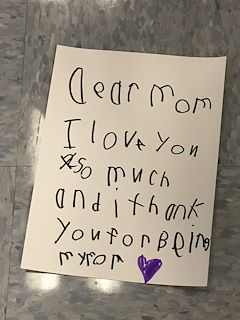 Dear mom
I love you
so much
and i thank
you for Being
my for